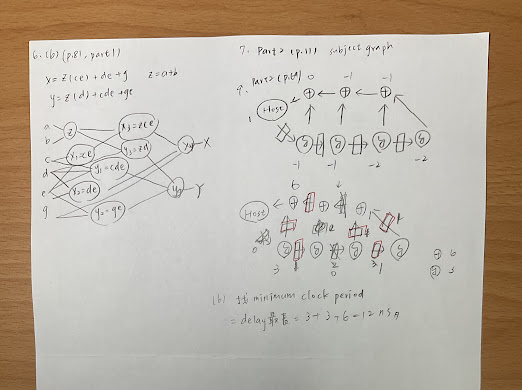 6. (b) (p.81, part1)
x = z(ce) + de + g    z = a+b
y = z(d) + cde + ge
a
b
c
d
e
g
z
x1=ce
x2=de
x3=zce
y3=zd
y1=cde
y2=ge
X
Y
7. Part2 (p.11) subject graph
9. Part2
0 -1 -1
Host
-1 -1 -2 -2
6
Host
0
3 2 3 1
0
6
3
(b) minimum clock period
= delay最長 = 3+3+6 = 12 ns